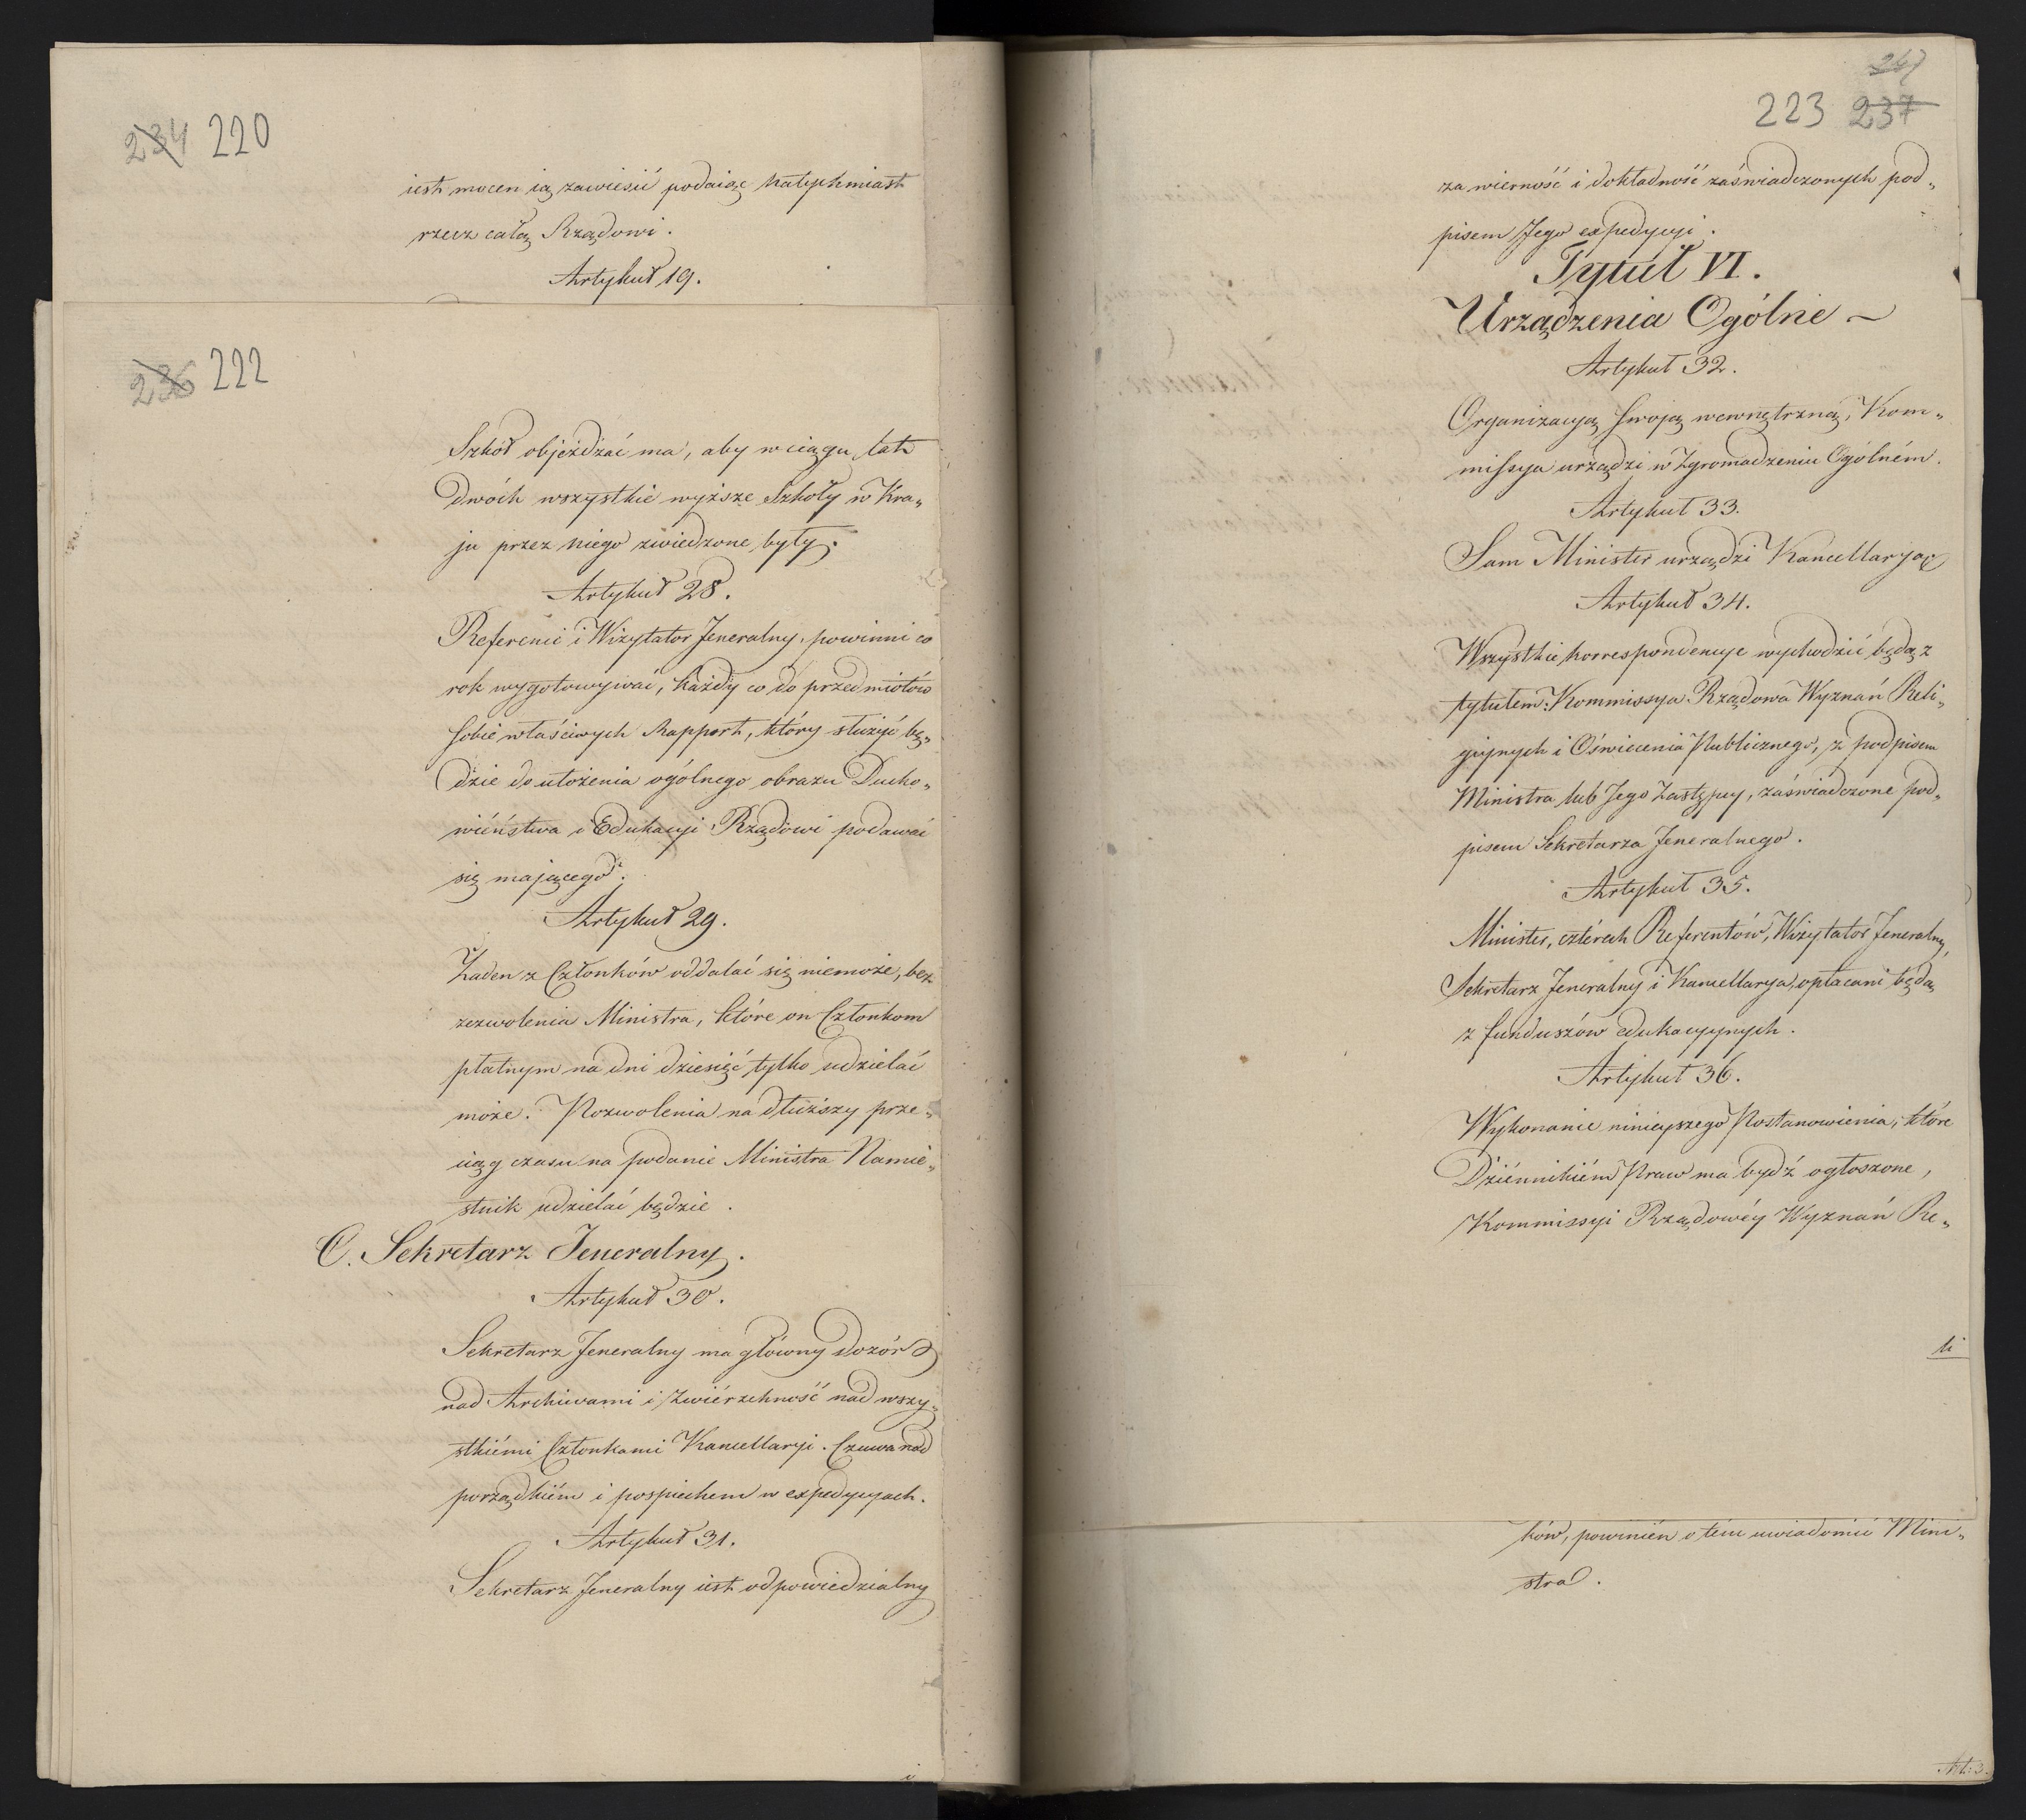 234 220
iest mocen ią zawiesić podaiąc natychmiast
rzecz całą Rządowi.
Artykuł 19.
236 222
Szkół objeżdżać ma, aby w ciągu lat
dwóch wszystkie wyższe Szkoły w Kra„
ju przez niego zwiedzone były.
Artykuł 28.
Referenci i Wizytator Jeneralny, powinni co
rok wygotowywać, każdy co do przedmiotów
sobie właściwych Rapport, który służyć bę„
dzie do ułożenia ogólnego obrazu Ducho„
wieństwa i Edukacyi Rządowi podawać
się mającego.
Artykuł 29.
Żaden z Członków oddalać się niemoże, bez
zezwolenia Ministra, które on Członkom
płatnym na dni dziesięć tylko udzielać
może. Pozwolenia na dłuższy prze„
ciąg czasu na podanie Ministra Namie„
stnik udzielać będzie.
C. Sekretarz Jeneralny.
Artykuł 30.
Sekretarz Jeneralny ma główny dozór
nad Archiwami i zwiérzchność nad wszy„
stkiémi Członkami Kancellaryi. Czuwa nad
porządkiém i pospiechem w expedycyach.
Artykuł 31.
Sekretarz Jeneralny iest odpowiedzialny
i
223 237
za wierność i dokładność zaświadczonych pod„
pisem Jego expedycyi.
Tytuł VI.
Urządzenia Ogólne ~
Artykuł 32.
Organizacyą swoją wewnętrzną, Kom„
missya urządzi w Zgromadzeniu Ogólném.
Artykuł 33.
Sam Minister urządzi Kancellaryą
Artykuł 34.
Wszystkie korrespondencye wychodzić będą z
tytułem: Kommissya Rządowa Wyznań Reli„
giynych i Oświecenia Publicznego, z podpisem
Ministra lub Jego Zastępcy, zaświadczone pod„
pisem Sekretarza Jeneralnego.
Artykuł 35.
Minister, cztérech Referentów, Wizytator Jeneralny,
Sekretarz Jeneralny i Kancellarya, opłacani będą
z funduszów edukacyynych.
Artykuł 36.
Wykonanie ninieyszego Postanowienia, które
Dziénnikiém Praw ma bydź ogłoszone,
Kommissyi Rządowéy Wyznań Re„
li
ków, powinién o tém uwiadomić Mini„
stra.
Art: 3.